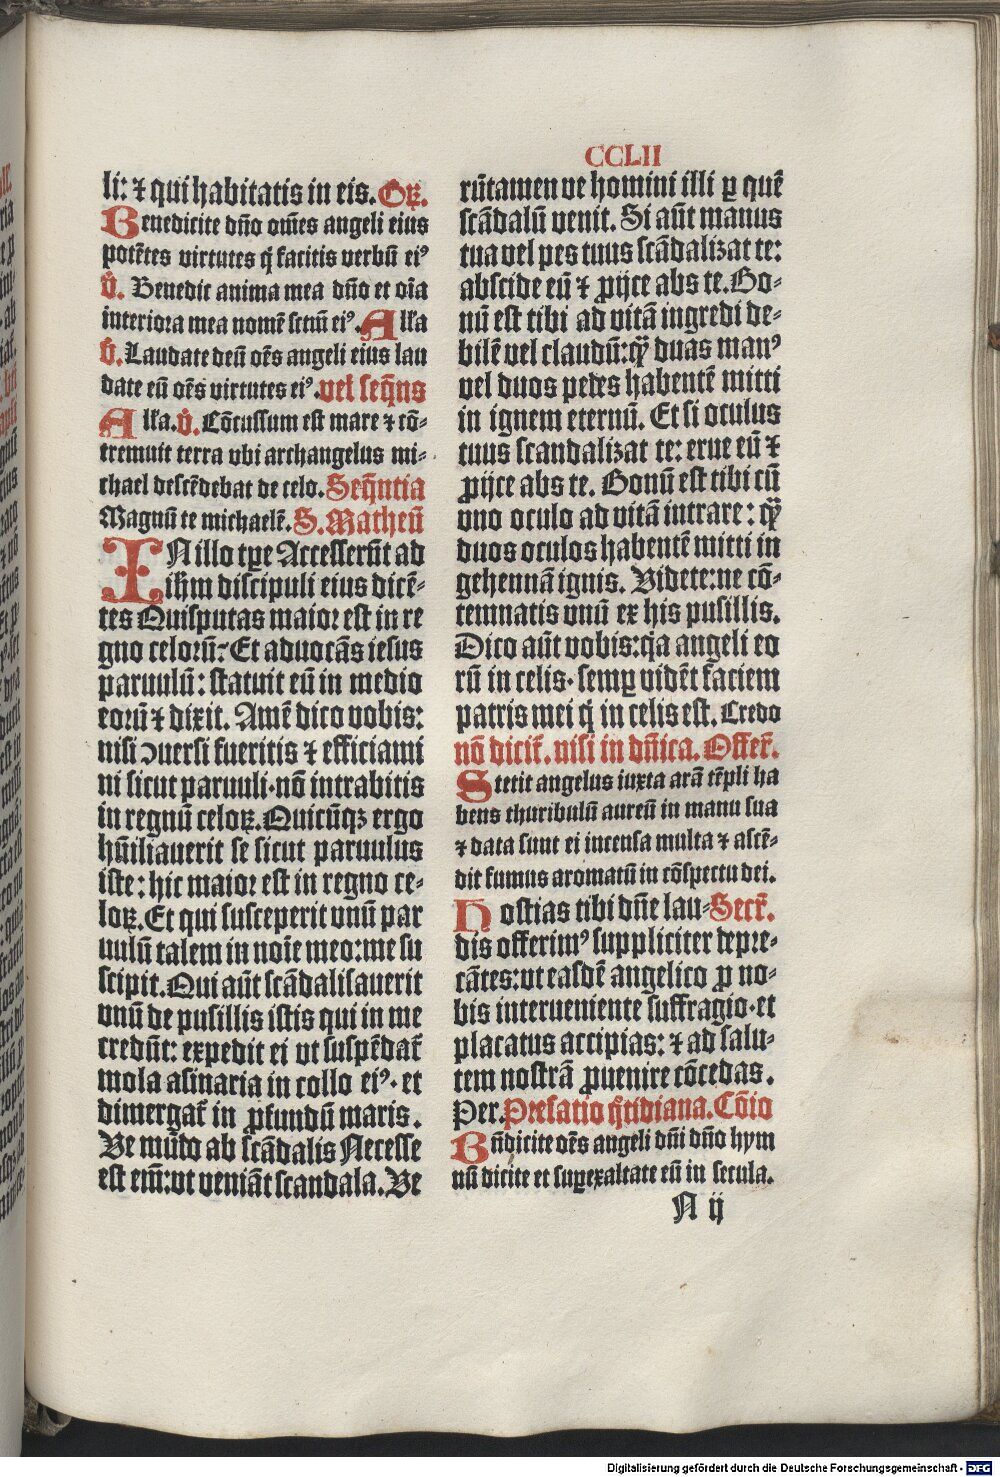 CCLII
li: ⁊ qui habitatis in eis. Gꝛ.
Benedicite dn̄o om̄es angeli eius
potētes virtutes q̇ facitis verbū eiꝰ
v̇. Benedic anima mea dn̄o et oīa
interiora mea nomē sctm̄ eiꝰ. Alľa
v̇. Laudate deū oēs angeli eius lau
date eū oēs virtutes eiꝰ. vel seqn̄s
Alľa. v̇. Cōcussum est mare ⁊ cō-
tremuit terra vbi archangelus mi-
chael descēdebat de celo. Seqn̄tia
Magnū te michaelē. S. Matheū
IN illo tꝑe Accesserūt ad
ihm̄ discipuli eius dicē-
tes Quisputas maior est in re
gno celorū? Et aduocās iesus
paruulū: statuit eū in medio
eorū ⁊ dixit. Amē dico vobis:
nisi ꝯuersi fueritis ⁊ efficiami
ni sicut paruuli. nō intrabitis
in regnū celoꝝ. Quicūqꝫ ergo
hūiliauerit se sicut paruulus
iste: hic maior est in regno ce-
loꝝ. Et qui susceperit vnū par
uulū talem in noīe meo: me su
scipit. Qui aūt scādalisauerit
vnū de pusillis istis qui in me
credūt: expedit ei vt suspēdat̄
mola asinaria in collo eiꝰ. et
dimergat̄ in ꝓfundū maris.
Ve mūdo ab scādalis Necesse
est em̄: vt veniāt scandala. Ve
rūtamen ve homini illi ꝑ quē
scādalū venit. Si aūt manus
tua vel pes tuus scādalizat te:
abscide eū ⁊ ꝓijce abs te. Bo-
nū est tibi ad vitā ingredi de-
bilē vel claudū: qꝫ̄ duas manꝰ
vel duos pedes habentē mitti
in ignem eternū. Et si oculus
tuus scandalizat te: erue eū ⁊
ꝓijce abs te. Bonū est tibi cū
vno oculo ad vitā intrare: qꝫ̄
duos oculos habentē mitti in
gehennā ignis. Videte: ne cō-
temnatis vnū ex his pusillis.
Dico aūt vobis: qa angeli eo
rū in celis. semꝑ vidēt faciem
patris mei q̇ in celis est. Credo
nō dicit̄. nisi in dn̄ica. Offer̄.
Stetit angelus iuxta arā tēpli ha
bens thuribulū aureū in manu sua
⁊ data sunt ei incensa multa ⁊ ascē-
dit fumus aromatū in cōspectu dei.
Hostias tibi dn̄e lau- Secr̄.
dis offerimꝰ suppliciter depre-
cātes: vt easdē angelico ꝓ no-
bis interueniente suffragio. et
placatus accipias: ⁊ ad salu-
tem nostrā ꝓuenire cōcedas.
Per. Prefatio q̄tidiana. Cōio
Bn̄dicite oēs angeli dn̄i dn̄o hym
nū dicite et suꝑexaltate eū in secula.
N ij
Digitalisierung gefördert durch die Deutsche Forschungsgemeinschaft - DFG